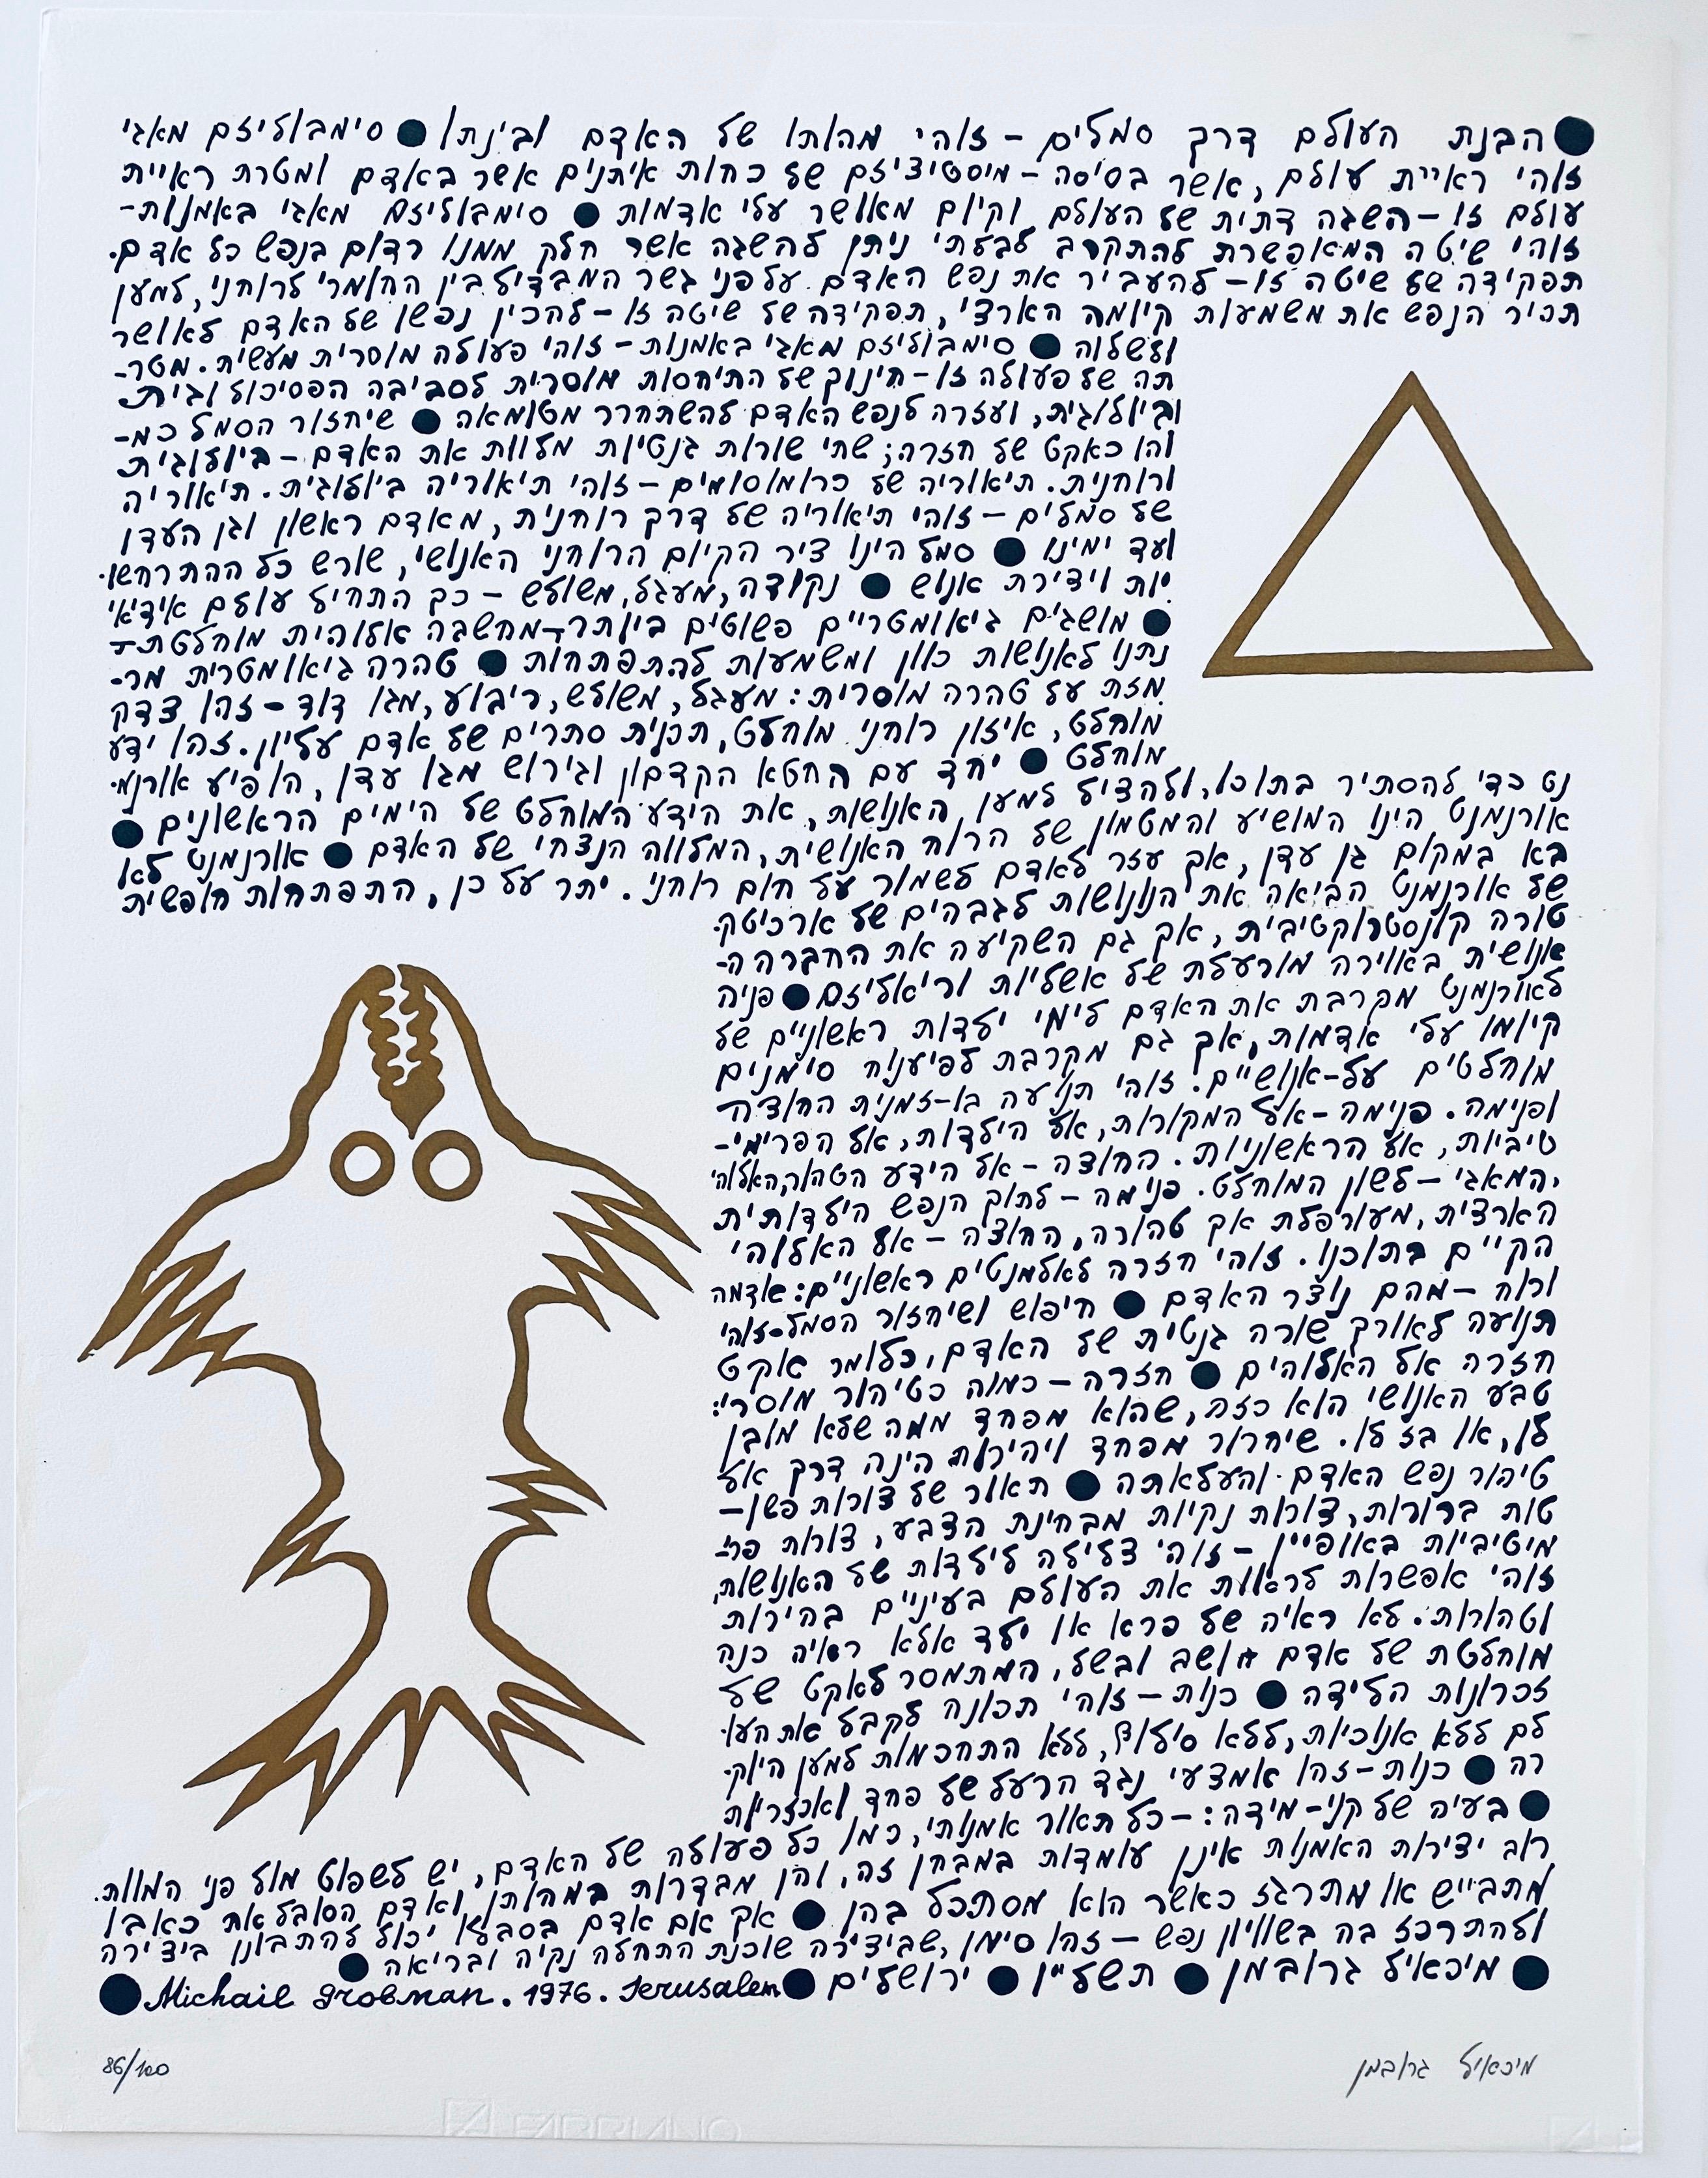 ●הבנת העולם דרך סמלים – זוהי מהותו של האדם ובינתו ● סימבוליזם מאגי
זוהי ראיית עולם, אשר בסיסה – מיסטיציזם של כחות איתנים אשר באדם ומטרת ראיית
עולם זו – השגה דתית של העולם וקיום מאושר עלי אדמות ● סימבוליזם מאגי באמנות-
זוהי שיטה המאפשרת להתקרב לבלתי ניתן להשגה אשר חלק ממנו רדום בנפש כל אדם.
תפקידה של שיטה זו – להעביר את נפש האדם על פני גשר המבדיל בין החומרי לרוחני, למען
תכיר הנפש את משמעות קיומה הארצי, תפקידה של שיטה זו – להכין נפשו של האדם לאושר
ולשלוה ● סימבוליזם מאגי באמנות – זוהי פעולה מוסרית מעשית. מטר-
תה של פעולה זו – חינוך של התיחסות מוסרית לסביבה הפסיכולוגית.
וביולוגית, ועזרה לנפש האדם להשתחרר מטומאה ● שיחזור הסמל כמ-
והו כאקט של חזרה; שתי שורות גנטיות מלוות את האדם – ביולוגית
ורוחנית. תיאוריה של כרומוסומים – זוהי תיאוריה ביולוגית. תיאוריה
של סמלים – זוהי תיאוריה של דרך רוחנית, מאדם ראשון וגן העדן
ועד ימינו ● סמל הינו ציר הקיום הרוחני האנושי, שורש כל ההתרחשו.
יות ויצירת אנוש ● נקודה, מעגל, משולש – כך התחיל עולם אידיאי
● מושגים גיאומטריים פשוטים ביותר – מחשבה אלוהית מוחלטת –
נתנו לאנושות כוון ומשמעות להתפתחות ● טהרה גיאומטרית מר-
מזת על טהרה מוסרית: מעגל, משולש, ריבוע, מגן דוד – זהו צדק
מוחלט, איזון רוחני מוחלט, תכנית סתרים של אדם עליון. זהו ידע
מוחלט ● יחד עם החטא הקדמון וגירוש מגן עדן, הופיע אורנמ.
נט כדי להסתיר בתוכו, ולהציל למען האנושות, את הידע המוחלט של הימים הראשונים ●
אורנמנט הינו המושיע והמטמון של הרוח האנושית, המלווה הנצחי של האדם ● אורנמנט לא
בא במקום גן עדן, אך עזר לאדם לשמור על חום רוחני. יתר על כן, התפתחות חופשית
של אורנמנט הביאה את האנושות לגבהים של ארכיטק.
טורה קונסטרוקטיבית, אך גם השקיעה את החברה ה-
אנושית באוירה מורעלת של אשליות וריאליזם ● פניה
לאורנמנט מקרבת את האדם לימי ילדות ראשוניים של
קיומו עלי אדמות, אך גם מקרבת לפיענוח סימנים
מוחלטים על-אנושיים. זוהי תנועה בו-זמנית החוצה
ופנימה. פנימה – אל המקורות, אל הילדות, אל הפרימי-
טיביות, אל הראשוניות. החוצה – אל הידע הטהור, האלוהי
,המאגי – לשון המוחלט. פנימה – לתוך הנפש הילדותית
הארצית, מעורפלת אך טהורה, החוצה – אל האלוהי
הקיים בתוכנו. זוהי חזרה לאלמנטים ראשוניים: אדמה
ורוח – מהם נוצר האדם ● חיפוש ושיחזור הסמל – זוהי
תנועה לאורך שורה גנטית של האדם, כלומר אקט
חזרה אל האלוהים ● חזרה – כמוה כטיהור מוסרי:
טבע האנושי הוא כזה, שהוא מפחד ממה שלא מובן
לו, או בז לו. שיחרור מפחד ויהירות הינה דרך אל
טיהור נפש האדם והעלאתה ● תאור של צורות פשו –
טות ברורות, צורות נקיות מבחינת הצבע, צורות פר-
מיטיביות באופיין – זוהי צלילה לילדות של האנושות,
זוהי אפשרות לראות את העולם בעיניים בהירות
וטהורות. לא ראיה של פרא או ילד אלא ראיה כנה
מוחלטת של אדם חושב ובשל, המתמסר לאקט של
זכרונות הלידה ● כנות – זוהי תכונה לקבל את העו.
לם ללא אנוכיות, ללא סילוף, ללא התחכמות למען היוק.
רה ● כנות – זהו אמצעי נגד הרעל של פחד ואכזריות
● בעיה של קני-מידה: – כל תאור אמנותי, כמו כל פעולה של האדם, יש לשפוט מול פני המוות.
רוב יצירות האמנות אינן עומדות במבחן זה, והן מבדרות במהותן, ואדם הסובל את כאבו
מתבייש או מתרגז כאשר הוא מסתכל בהן ● אך אם אדם בסבלו יכול להתבונן ביצירה
ולהתרכז בה בשוויון נפש – זהו סימן, שביצירה שוכנת התחלה נקיה ובריאה ●
● מיכאיל גרובמן ● תשל״ו ● ירושלים ● Michail Grobman. 1976. Jerusalem ●
86/100
מיכאיל גרובמן
FABRIANO